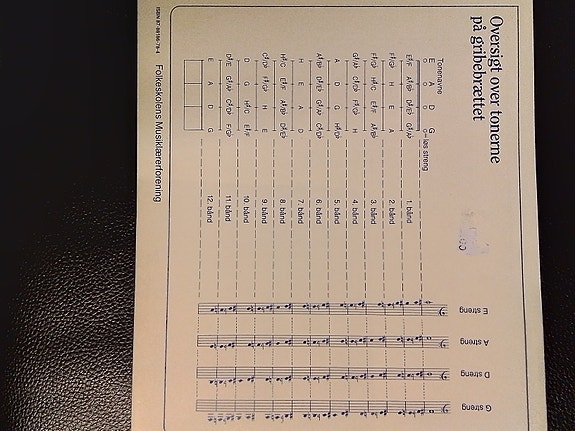 Oversigt over tonerne
på gribebrættet
Tonenavne
E A D G
o o o o = løs streng
E/F A♯/B D♯/E♭ G♯/A♭ 1. bånd
F♯/G♭ H E A 2. bånd
H/C E/F A♯/B 3. bånd
G♯/A♭ C♯/D♭ F♯/G♭ H 4. bånd
A D G 5. bånd
A♯/B D♯/E♭ G♯/A♭ C♯/D♭ 6. bånd
H E A D 7. bånd
H/C E/F A♯/B D♯/E♭ 8. bånd
C♯/D♭ F♯/G♭ H E 9. bånd
D G H/C E/F 10. bånd
G♯/A♭ C♯/D♭ 11. bånd
E A D G 12. bånd
E streng
A streng
D streng
G streng
Folkeskolens Musiklærerforening